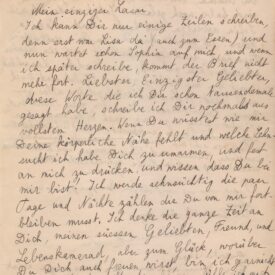 Mein einziger Lazar.
Ich kann Dir nur einige Zeilen schreiben,
denn erst war Lisa da (auch zum Essen) und
nun wartet schon Sophia auf mich und wenn
ich später schreibe, kommt der Brief nicht
mehr fort. Liebster einzigster Geliebter,
diese Worte die ich Du schon tausendemale
gesagt habe, schreibe ich Dir nochmals aus
vollstem Herzen. Wenn Du wüsstest wie mir
Deine körperliche Nähe fehlt und welche Sehn-
sucht ich habe Dich zu umarmen, und fest
an mich zu drücken. und wissen dass Du bei
mir bist. Ich werde sehnsüchtig die paar
Tage und Nächte zählen die Du von mir fort
bleiben musst. Ich denke die ganze Zeit an
Dich, meinen süssen Geliebten, Freund, und
Lebenskamerad, aber zum Glück, worüber
Du Dich auch freuen wirst, bin ich garnicht